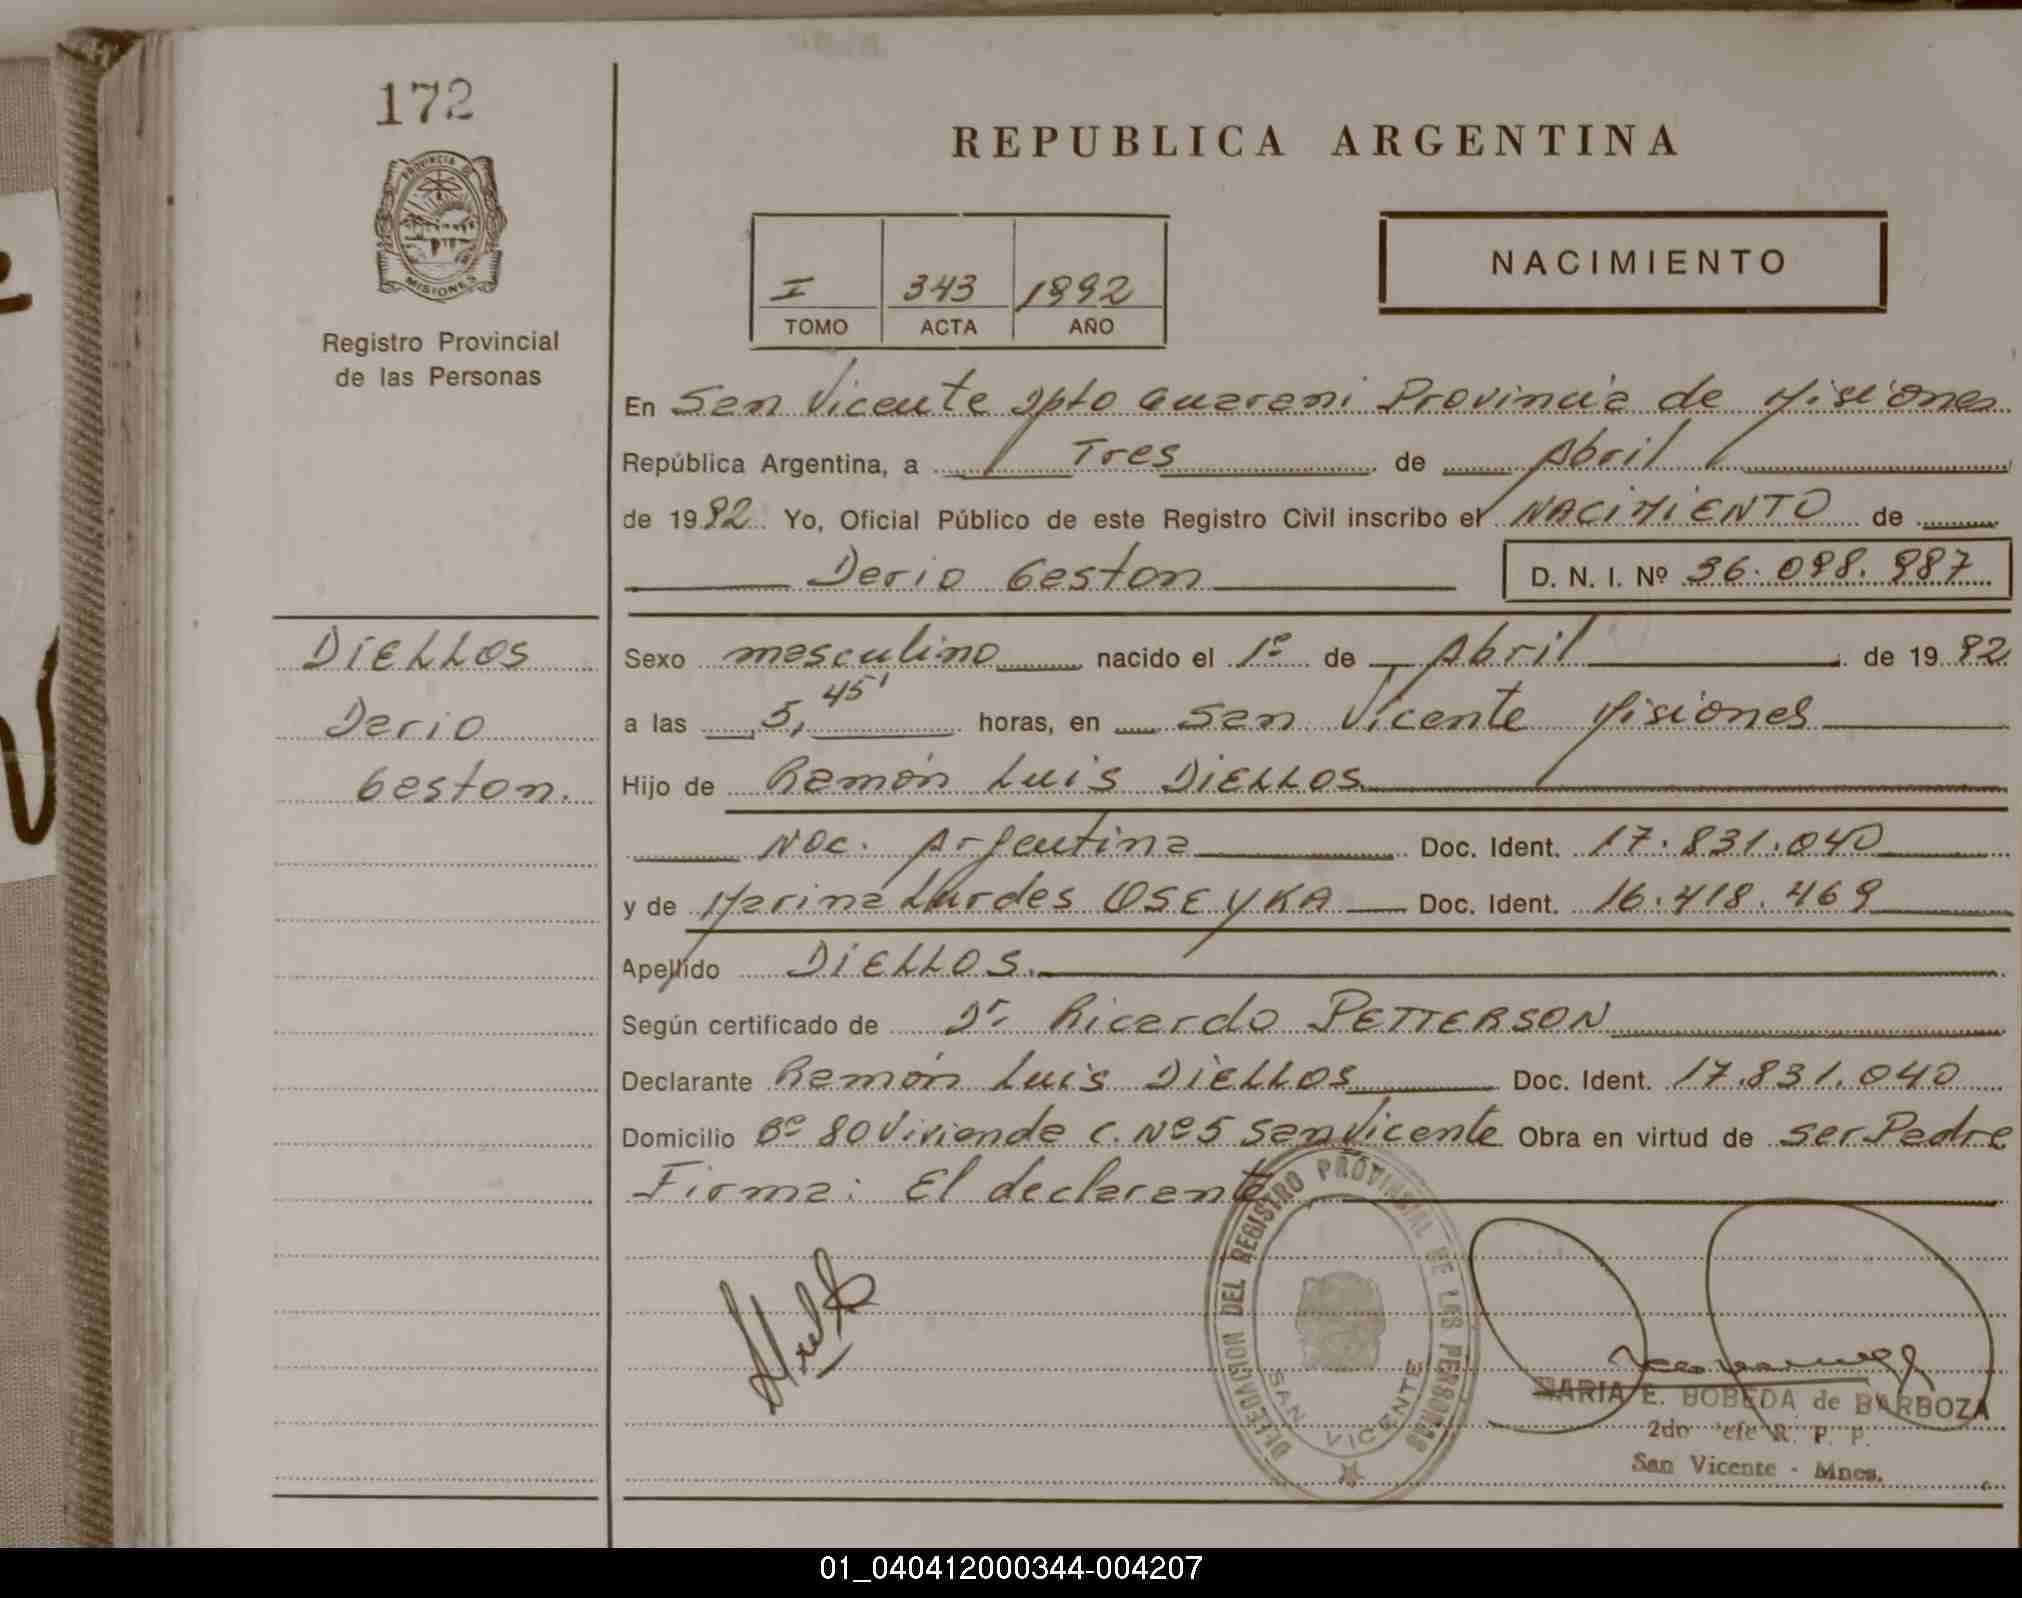 172
PROVINCIA DE
MISIONES
Registro Provincial
de las Personas
REPUBLICA ARGENTINA
I 343 1992
TOMO ACTA AÑO
NACIMIENTO
En San Vicente Dpto Guarani Provincia de Misiones
República Argentina, a Tres de Abril
de 1992 Yo, Oficial Público de este Registro Civil inscribo el NACIMIENTO de
Dario Gaston D. N. I. Nº 36.098.987
DIELLOS
Dario
Gaston.
Sexo masculino nacido el 1º de Abril de 1992
a las 5,45' horas, en San Vicente Misiones
Hijo de Ramón Luis DIELLOS
Nac. Argentina Doc. Ident. 17.831.040
y de Marina Lurdes OSEYKA Doc. Ident. 16.418.469
Apellido DIELLOS.
Según certificado de Dr Ricardo PETTERSON
Declarante Ramón Luis DIELLOS Doc. Ident. 17.831.040
Domicilio Bº 80 Vivienda C. Nº 5 San Vicente Obra en virtud de ser Padre
Firma: El declarante
DELEGACION DEL REGISTRO PROVINCIAL DE LAS PERSONAS
SAN VICENTE
MARIA E. BOBEDA de BARBOZA
2do Jefe R. P. P.
San Vicente - Mnes.
01_040412000344-004207